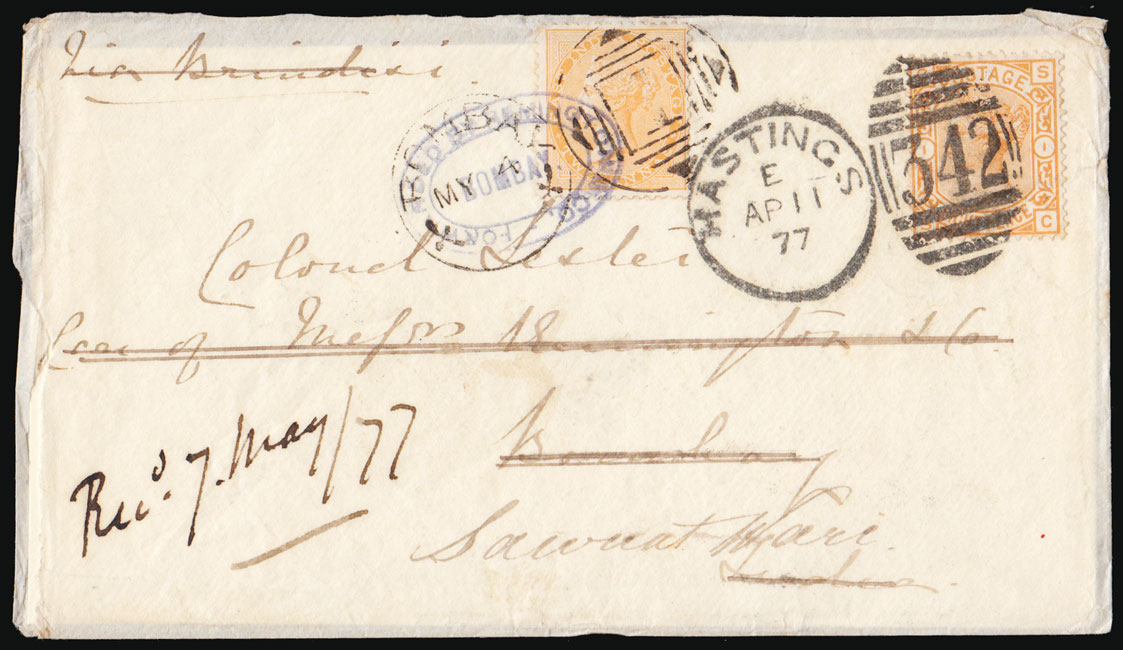 Via Brindisi.
BOMBAY
MY 4
BOMBAY
FORWARDED
HASTINGS
E
AP 11
77
POSTAGE
S
342
C
Colonel Lester
Care of Messrs Remington & Co.
Bombay
Sawunt Wari.
India.
Recd. 7. May/77